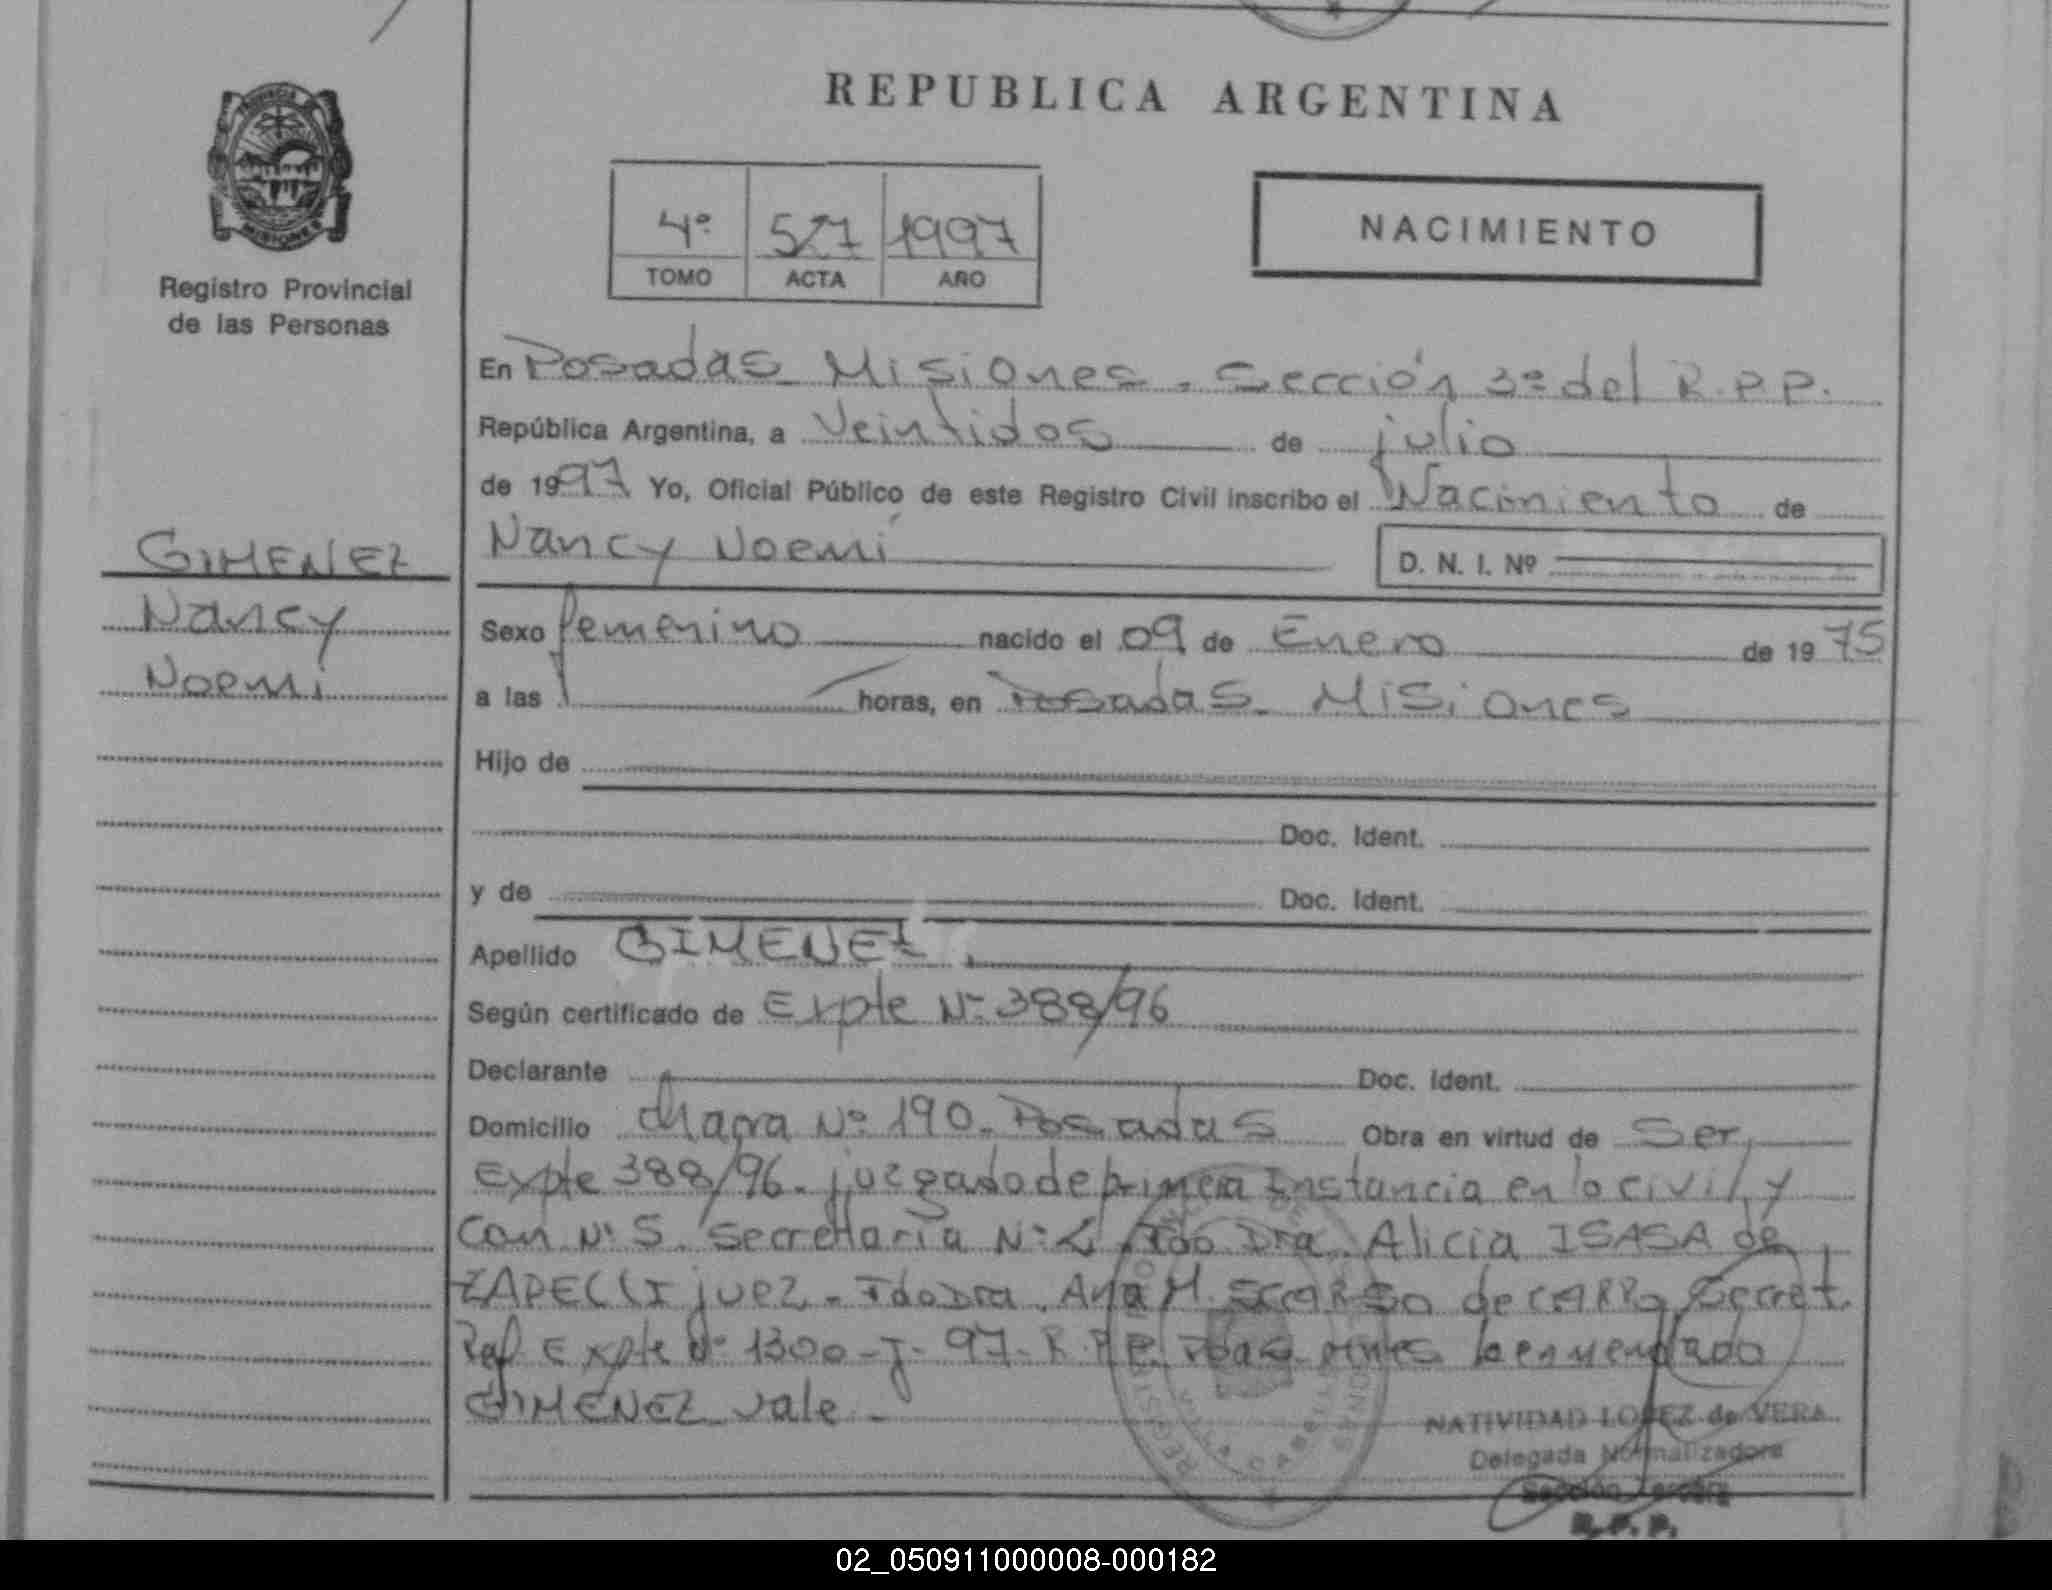 REPUBLICA ARGENTINA
PROVINCIA DE
MISIONES
Registro Provincial
de las Personas
4º 527 1997
TOMO ACTA AÑO
NACIMIENTO
En Posadas Misiones. Sección 3ª del R.P.P.
República Argentina, a Veintidos de julio
de 1997 Yo, Oficial Público de este Registro Civil inscribo el Nacimiento de
Nancy Noemí D. N. I. Nº
GIMENEZ
Nancy
Noemi
Sexo femenino nacido el 09 de Enero de 1975
a las horas, en Posadas Misiones
Hijo de
Doc. Ident.
y de Doc. Ident.
Apellido GIMENEZ.
Según certificado de Expte Nº 388/96
Declarante Doc. Ident.
Domicilio chacra Nº 190. Posadas Obra en virtud de Ser,
Expte 388/96. juzgado de primera Instancia en lo civil, y
Com Nº 5. Secretaría Nº 2. Fdo Dra. Alicia ISASA de
ZAPELLI juez. Fdo Dra. Ana M. de Secret.
Ref. Expte Nº 1300-J-97- R.P.P. Pdas. Mnes lo enmendado
GIMENEZ vale.
NATIVIDAD LOPEZ de VERA
Delegada Normalizadora
Sección Tercera
R.P.P.
02_050911000008-000182